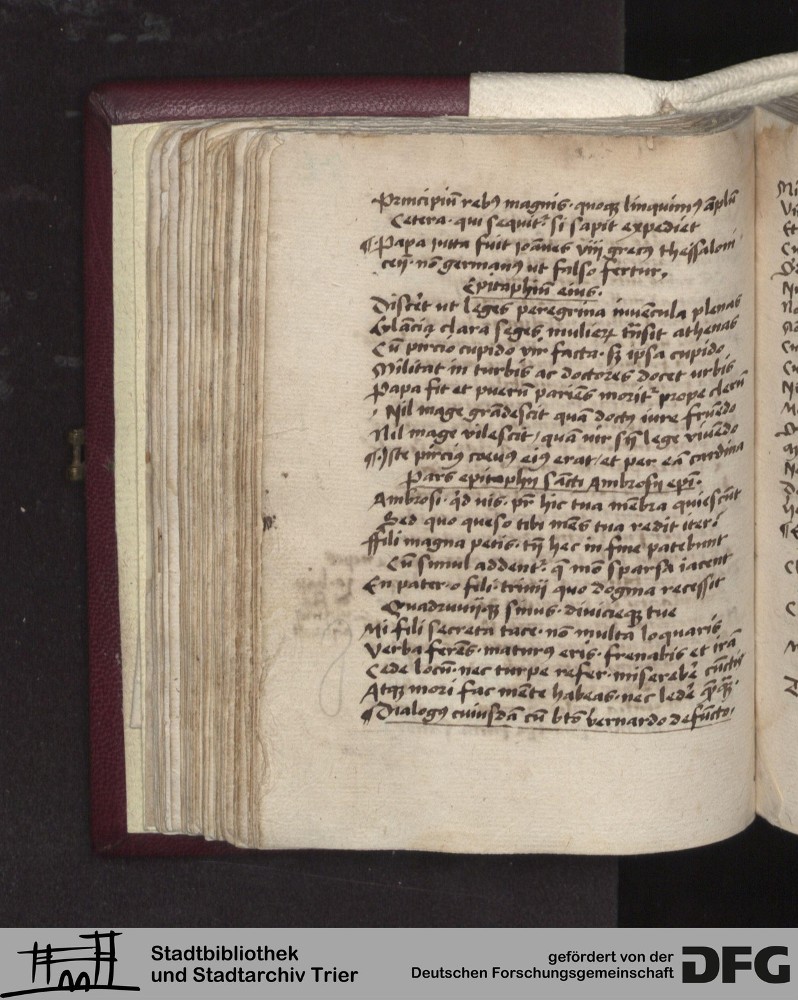 Principiū rebꝯ magnis · quoqꝫ linquimꝯ āplū
Cetera · qui sequitʳ si sapit expediet
¶ Papa Jutta fuit Joānes viij grecꝯ thessaloni
ceñ · nō germanꝯ ut falso fertur,
Epitaphiū eius.
Discēt ut leges peregrina iuvēcula plenas
clara seges mulieꝝ trāsit athenas
Cū pircio cupido vir facta · sꝫ ipsa cupido
Militat in turbis ac doctores docet urbis
Papa fit et puerū pariēs moritʳ prope clerū
Nil mage grādescit quā doctꝯ iure fruēdo
Nil mage vilescit / quā vir sñ lege vivēdo
¶ Iste pirciꝯ coevꝯ eiꝯ erat / et per eā cardina
Pars epitaphij sācti Ambrosij epī ·
Ambrosi · qd vis · pr̄ hic tua mēbra quiescūt
Sed quo queso tibi mēs tua redit iter ·
ffili magna petis · tñ hec in fine patebunt
Cū simul addentʳ q̄ mō sparsa iacent
En pater · o fili · trivij quo dogma recessit
Quadruvijqꝫ sinus · divicieqꝫ tue
Mi fili secreta tace · nō multa loquaris
Verba ferēs · maturꝯ eris · frenabis et irā
Cede locū · nec turpe refer · miserebē cūctis
Atqꝫ mori fac mēte habeas · nec lede
¶ Dialogꝯ cuiusdā cū btō bernardo defūcto /
Stadtbibliothek
und Stadtarchiv Trier
gefördert von der
Deutschen Forschungsgemeinschaft
DFG